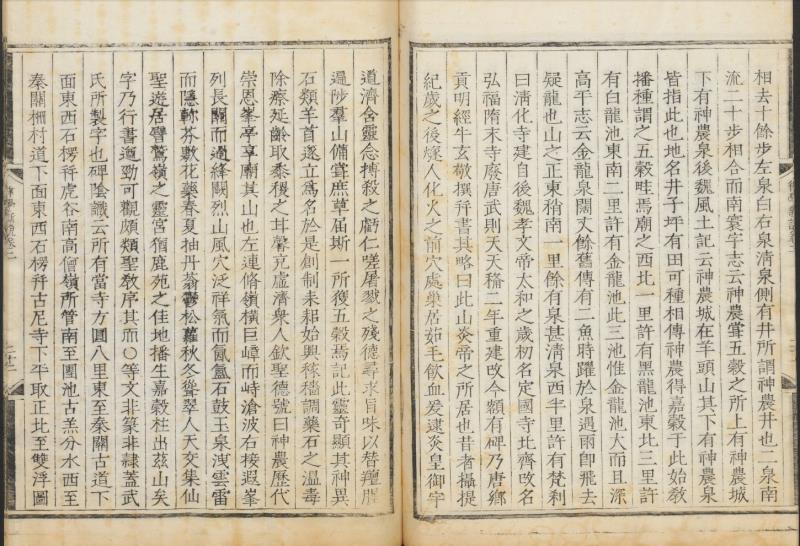 相去十餘步左泉白右泉清泉側有井所謂神農井也二泉南
流二十步相合而南寰宇志云神農嘗五穀之所上有神農城
下有神農泉後魏風土記云神農城在羊頭山其下有神農泉
皆指此也地名井子坪有田可種相傳神農得嘉穀于此始教
播種謂之五穀畦焉廟之西北一里許有黑龍池東北三里許
有白龍池東南二里許有金龍池此三池惟金龍池大而且深
高平志云金龍泉闊丈餘舊傳有二魚時躍於泉遇雨卽飛去
疑龍也山之正東稍南一里餘有泉甚清泉西半里許有梵刹
曰淸化寺建自後魏孝文帝太和之歲初名定國寺北齊改名
弘福隋末寺廢唐武則天天䄵二年重建改今額有碑乃唐鄉
貢明經牛玄敬撰幷書其略曰此山炎帝之所居也昔者攝提
紀歲之後燧人化火之前穴處巢居茹毛飲血爰逮炎皇御宇
道濟含靈念搏殺之虧仁嗟屠戮之殘德尋求旨味以替羶腥
遍陟羣山備嘗庶草届斯一所獲五穀焉記此靈奇顯其神異
石類羊首遂立爲名於是創制耒耜始興稼穡調藥石之溫毒
除瘵延齡取黍稷之甘馨充虛濟衆人欽聖德號曰神農歷代
崇恩峯亭享廟其山也左連脩嶺橫巨嶂而峙滄波右接遐峯
列長關而過絳闕烈山風穴泛祥氣而氤氳石鼓玉泉洩雲雷
而隱軫芬敷花藥春夏抽丹蓊鬱松蘿秋冬聳翠人天交集仙
聖遊居譬鷲嶺之靈宮猶鹿苑之佳地播生嘉穀柱出茲山矣
字乃行書遒勁可觀頗類聖教序其而〇等文非篆非隸蓋武
氏所製字也碑陰識云所有當寺方圓八里東至秦關古道下
面東西石楞幷虎谷南高僧嶺所管南至團池古羔分水西至
秦關柵村道下面東西石楞幷古尼寺下平取正北至雙浮圖